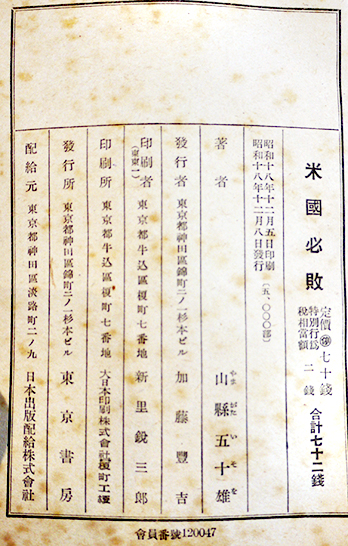 米國必敗
定價㊞七十錢
特別行爲
稅相當額 二錢
合計七十二錢
昭和十八年十二月五日印刷
昭和十八年十二月八日發行
(五、〇〇〇部)
著者 山縣五十雄
やまがたいそを
發行者 東京都神田區錦町二ノ一杉本ビル 加藤豐吉
印刷者 東京都牛込區榎町七番地 新里銳三郎
(東東一)
印刷所 東京都牛込區榎町七番地 大日本印刷株式會社榎町工場
發行所 東京都神田區錦町二ノ一杉本ビル 東京書房
配給元 東京都神田區淡路町二ノ九 日本出版配給株式會社
會員番號120047